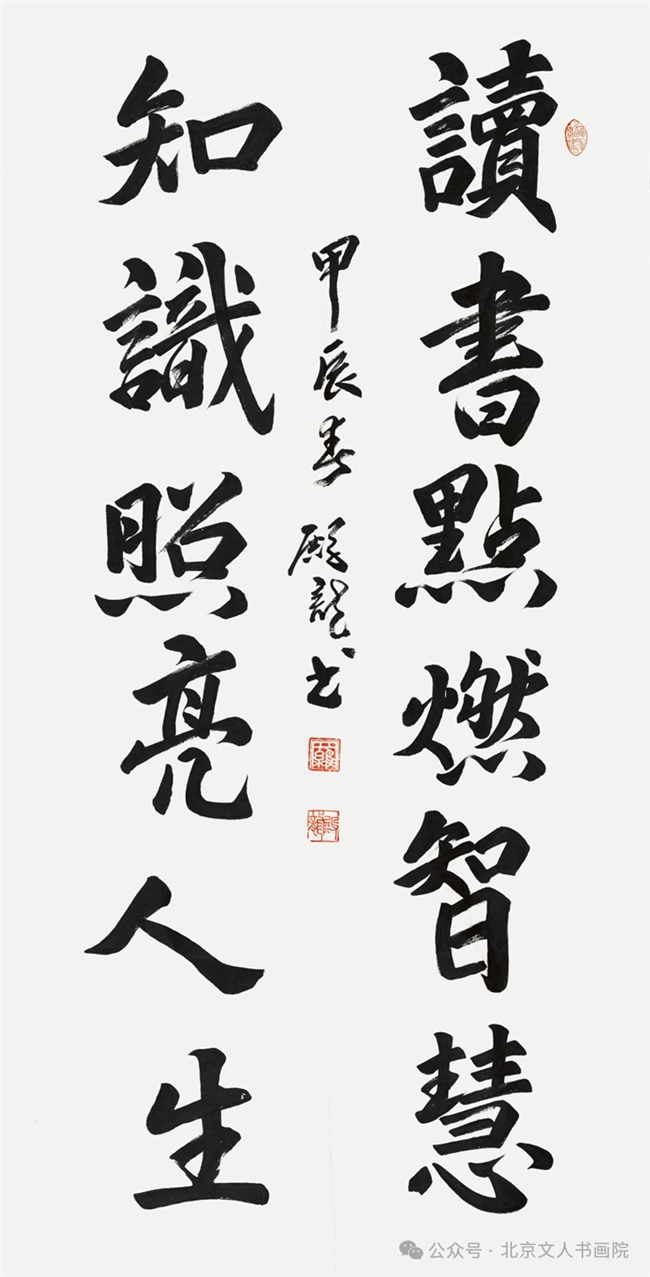 讀書點燃智慧
知識照亮人生
甲辰春 殿龍書
公众号·北京文人书画院